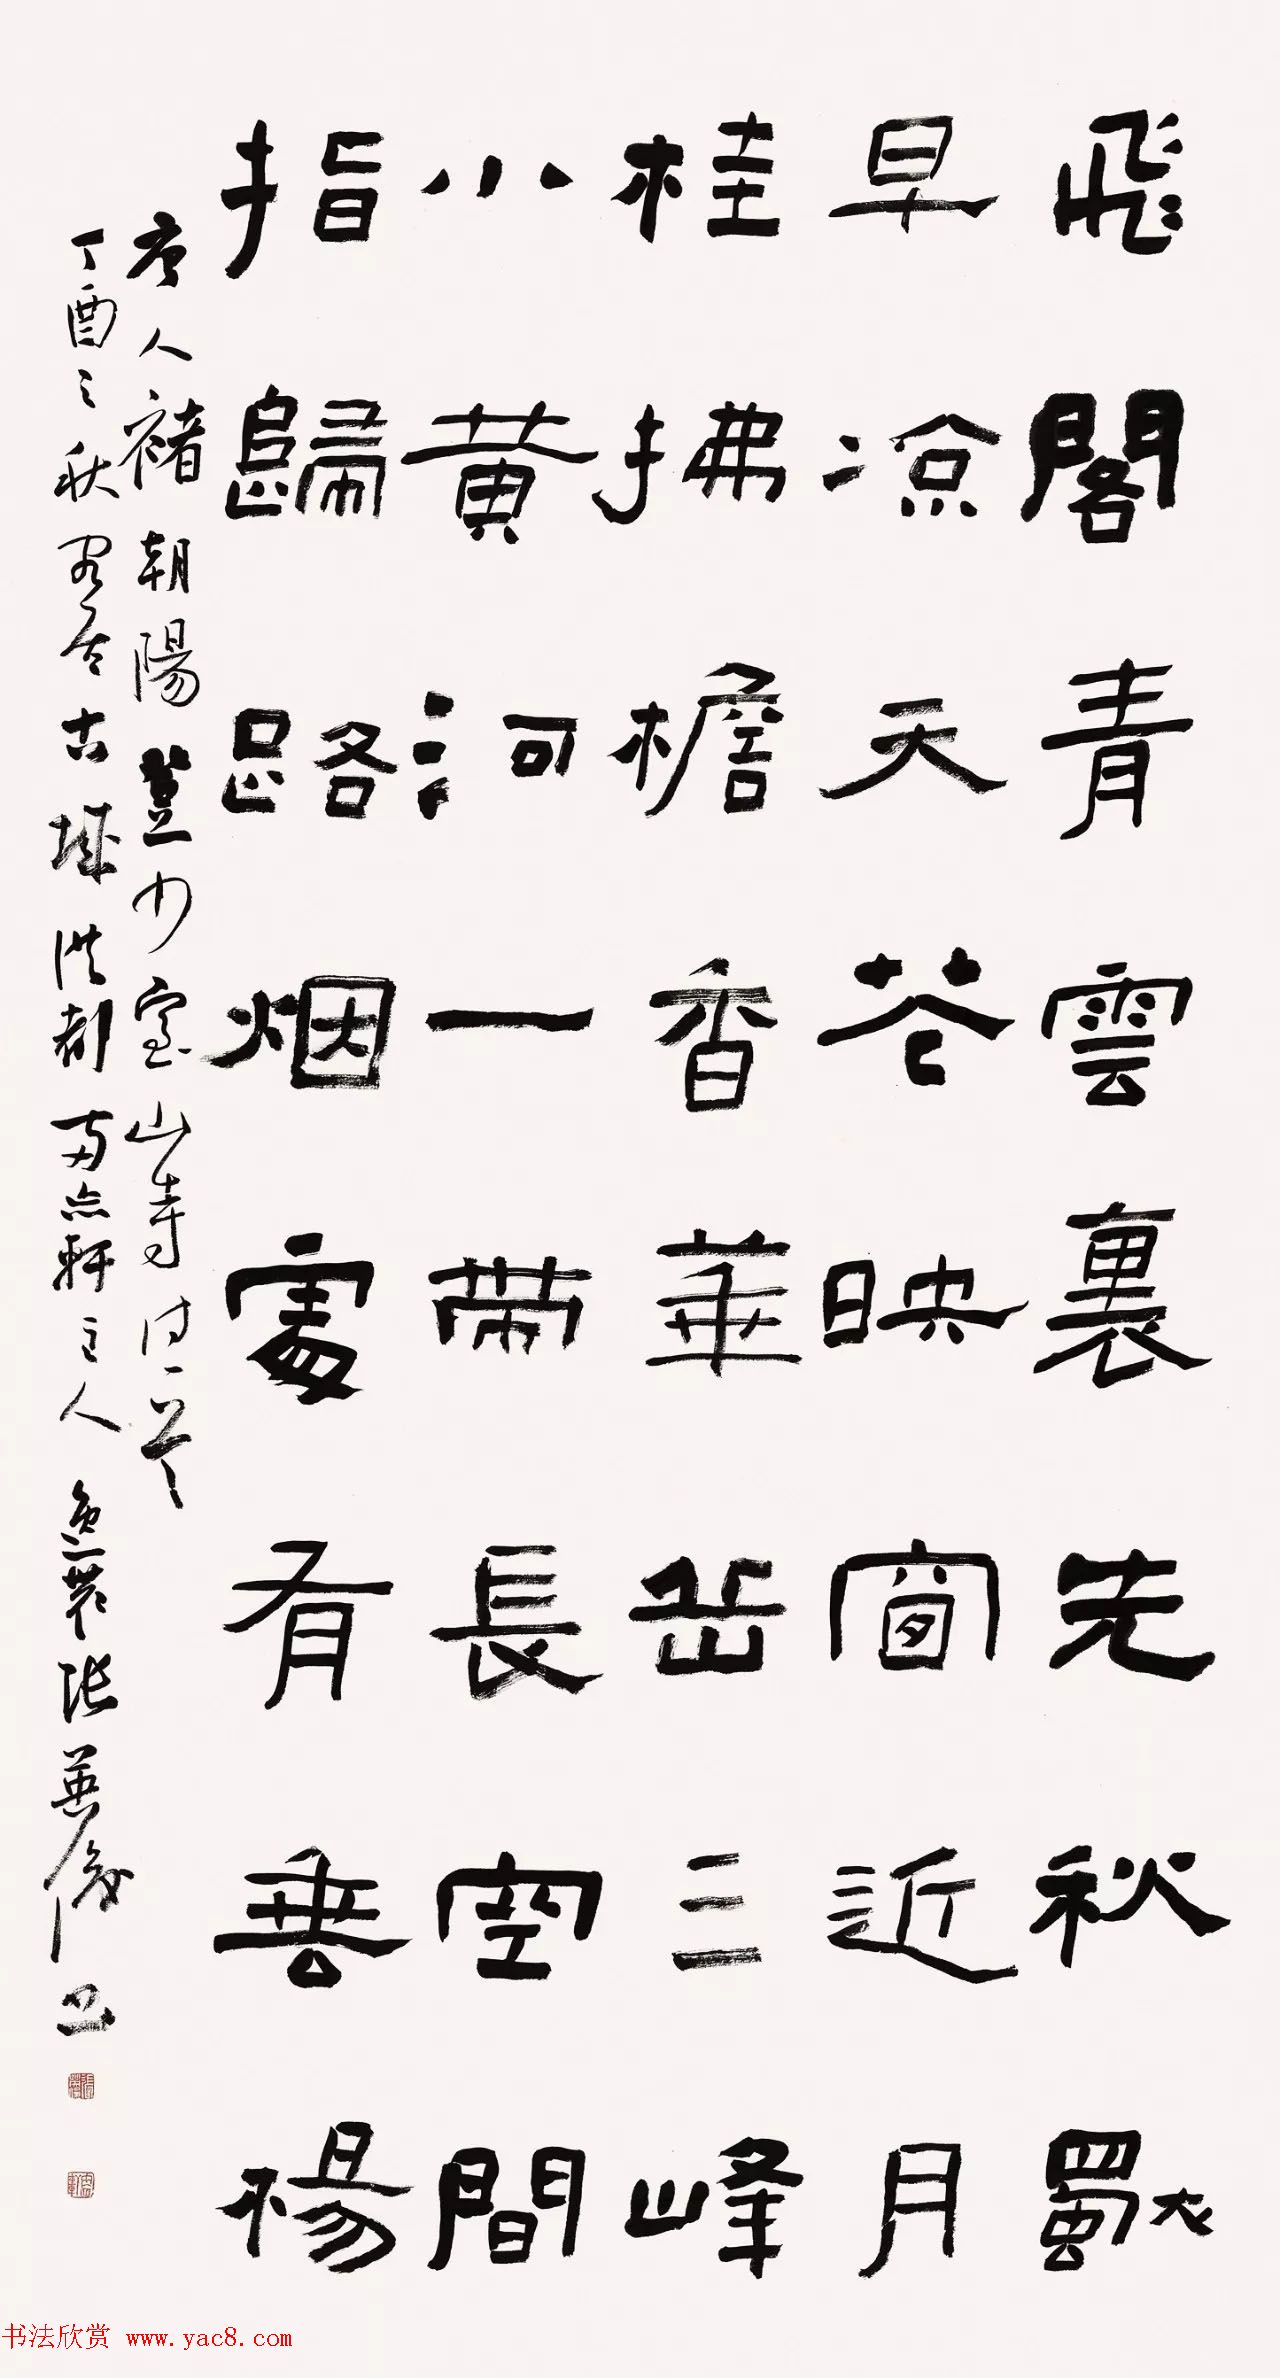 飛閣青雲裏先秋獨
早凉天花映窗近月
桂拂檐香華岳三峰
小黄河一帶長空間
指歸路烟處有垂楊
唐人褚朝陽登少室山寺詩一首
丁酉之秋客居古城洪都雨点軒主人逸農張英俊书
书法欣赏 www.yac8.com